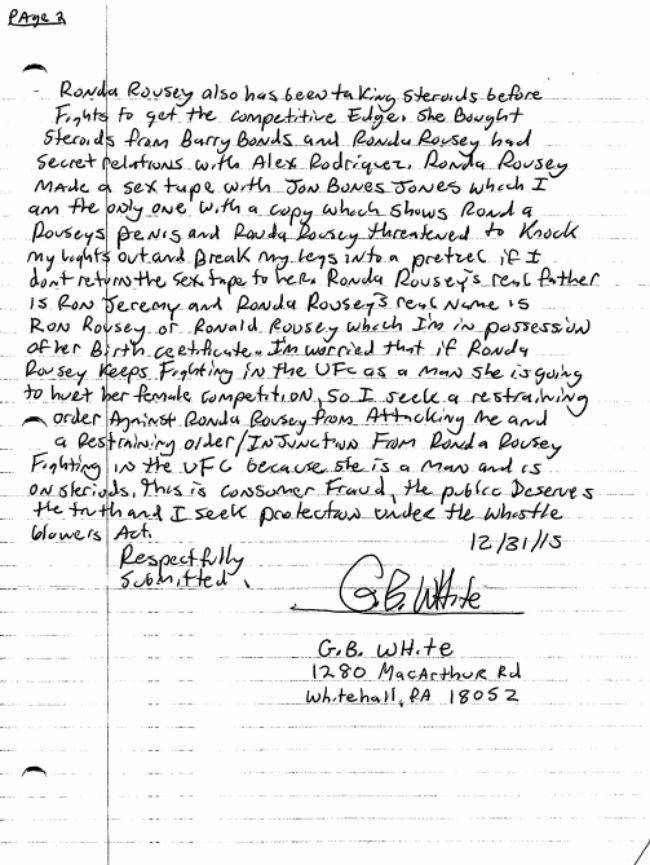 PAge 2
- Ronda Rousey also has been taking Steroids before
Fights to get the competitive Edge. She Bought
Steroids from Barry Bonds and Ronda Rousey had
Secret relations with Alex Rodriquez. Ronda Rousey
Made a sex tape with Jon Bones Jones which I
am the only one with a copy which shows Ronda
Rouseys penis and Ronda Rousey threatened to Knock
my lights out and Break my legs into a pretzel if I
dont return the sex tape to her. Ronda Rousey's real father
is Ron Jeremy and Ronda Rousey's real Name is
Ron Rousey or Ronald Rousey which I'm in possession
of her Birth certificate. I'm worried that if Ronda
Rousey Keeps Fighting in the UFC as a man she is going
to hurt her female competition, So I seek a restraining
order Against Ronda Rousey from Attacking me and
a Restraining order/INJunction From Ronda Rousey
Fighting in the UFC because she is a Man and is
on steriods. This is consumer Fraud, the public Deserves
the truth and I seek protection under the whistle
blowers Act.
12/31/15
Respectfully
Submitted.
G.B. White
G.B. White
1280 MacArthur Rd
Whitehall, PA 18052